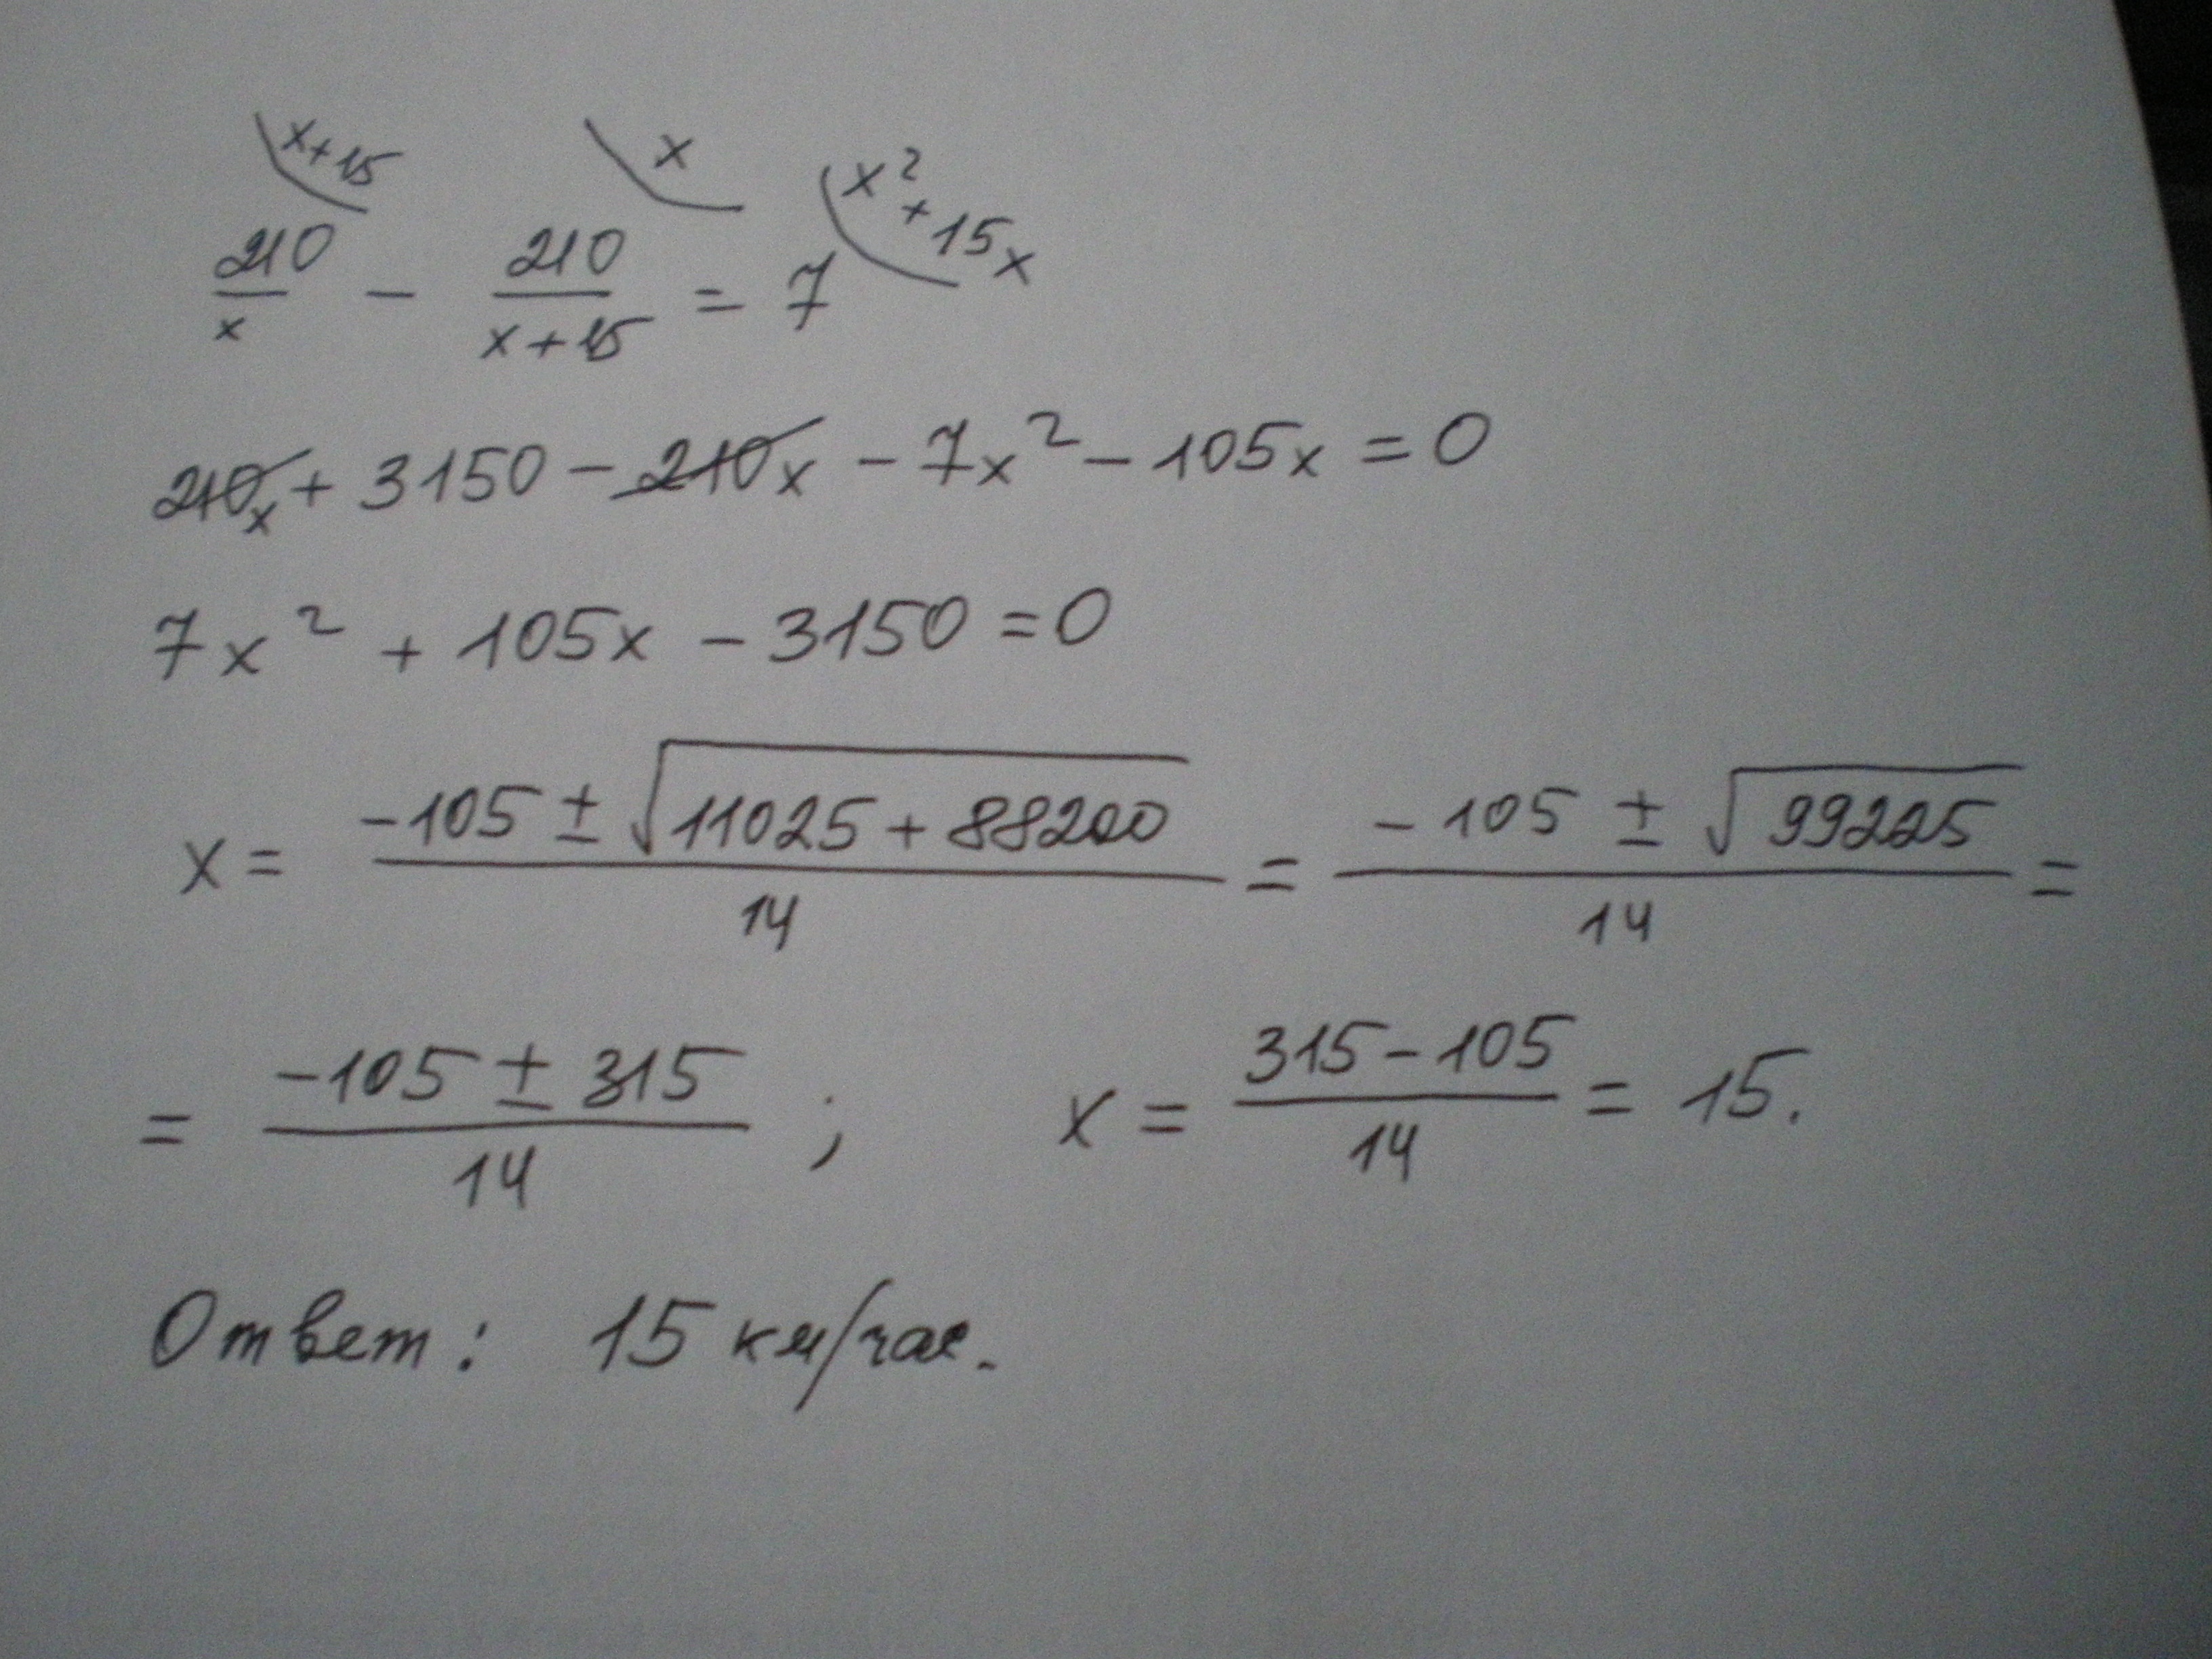 x+15 x x² + 15x
210/x - 210/(x+15) = 7
210x + 3150 - 210x - 7x² - 105x = 0
7x² + 105x - 3150 = 0
x = (-105 ± √(11025 + 88200))/14 = (-105 ± √99225)/14 =
= (-105 ± 315)/14 ; x = (315-105)/14 = 15.
Ответ: 15 км/час.